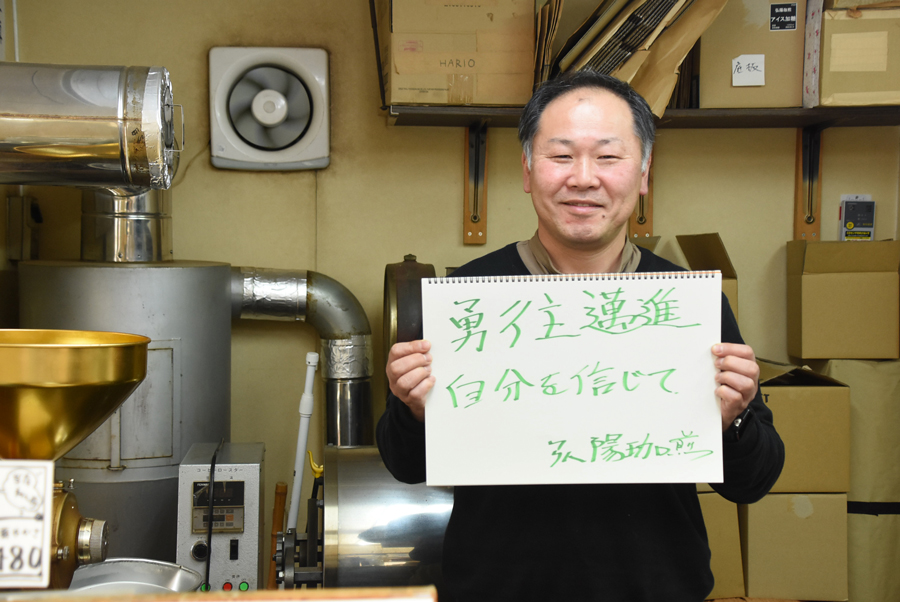 HARIO
アイス加糖
勇往邁進
自分を信じて
弘陽珈煎
480